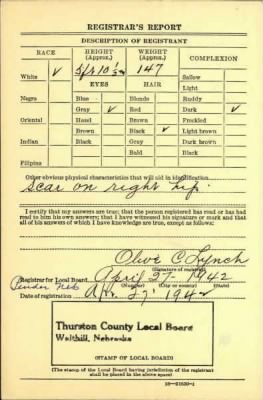 REGISTRAR'S REPORT
DESCRIPTION OF REGISTRANT
RACE HEIGHT (Approx.) WEIGHT (Approx.) COMPLEXION
White ✓ 5ft 10½ 147 Sallow
EYES HAIR Light
Negro Blue Blonde Ruddy
Gray ✓ Red Dark ✓
Oriental Hazel Brown Freckled
Brown Black ✓ Light brown
Indian Black Gray Dark brown
Bald Black
Filipino
Other obvious physical characteristics that will aid in identification
Scar on right hip.
I certify that my answers are true; that the person registered has read or has had
read to him his own answers; that I have witnessed his signature or mark and that
all of his answers of which I have knowledge are true, except as follows:
Olive C Lynch
(Signature of registrar)
April 27- 1942
Registrar for Local Board
(Number) (City or county) (State)
Pender Neb
Date of registration Apr. 27 1942
Thurston County Local Board
Walthill, Nebraska
(STAMP OF LOCAL BOARD)
(The stamp of the Local Board having jurisdiction of the registrant
shall be placed in the above space.)